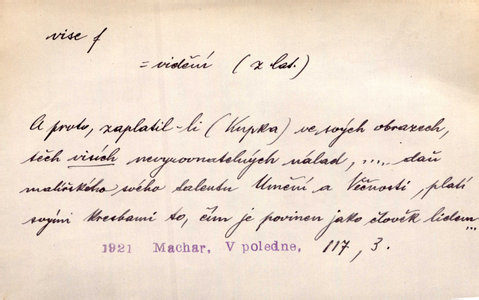 vise f
= vidění (z lat.)
A proto, zaplatil-li (Kupka) ve svých obrazech,
těch visích nevyrovnatelných nálad, ..... daň
malířského svého talentu Umění a Věčnosti, platí
svými kresbami to, čím je povinen jako člověk lidem...
1921 Machar, V poledne, 117, 3.